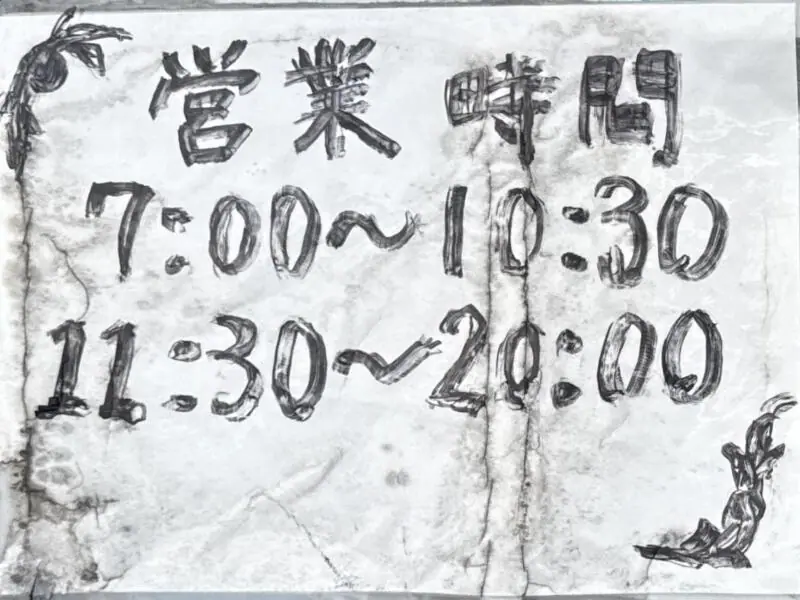 営業時間
7:00～10:30
11:30～20:00